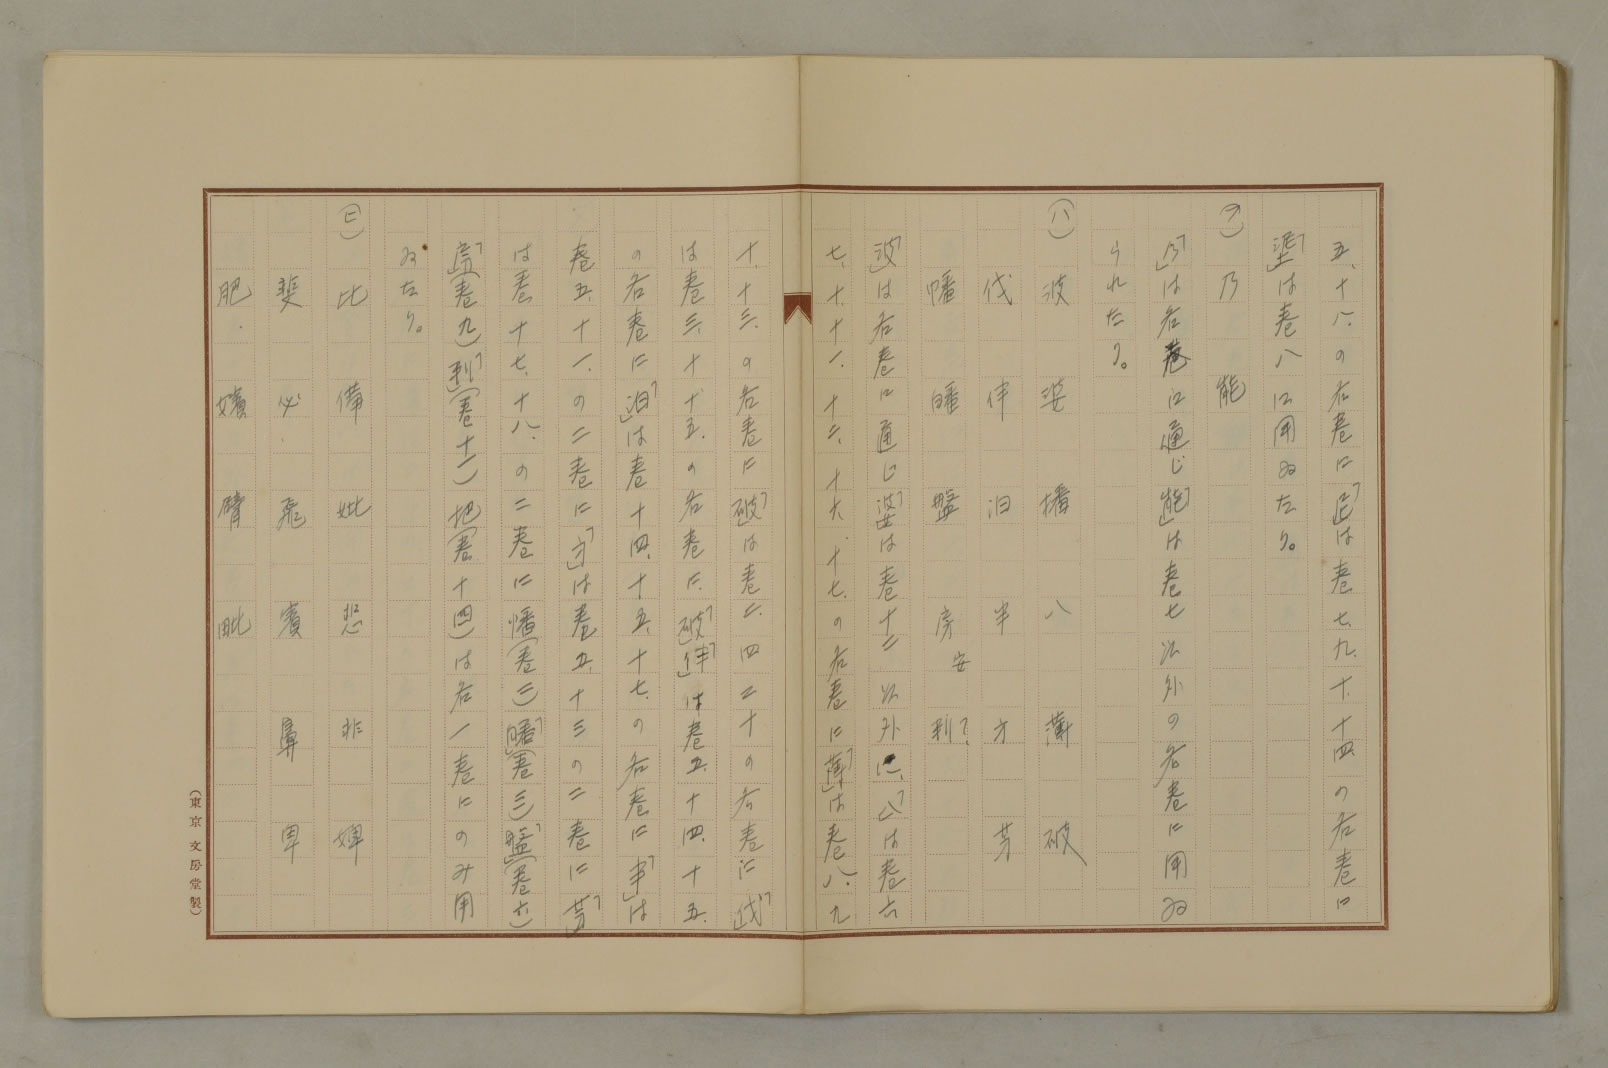 五、十八、の各巻に「尼」は巻七、九、十、十四、の各巻に
「涅」は巻八に用ゐたり。
(ノ) 乃 能
「乃」は各巻に通じ「能」は巻七以外の各巻に用ゐ
られたり。
(ハ) 波 婆 播 八 薄 破
伐 伴 泊 半 方 芳
幡 皤 盤 房 安 判?
「波」は各巻に通じ「婆」は巻十二以外に、「八」は巻六
七、十、十一、十二、十六、十七、の各巻に「薄」は巻八、九
十、十三、の各巻に「破」は巻二、四二十の各巻に「伐」
は巻三、十、十五、の各巻に、「破」「伴」は巻五、十四、十五、
の各巻に「泊」は巻十四、十五、十七、の各巻に「半」は
巻五、十一、の二巻に「方」は巻五、十三の二巻に「芳」
は巻、十七、十八、の二巻に「幡」(巻二)「皤」(巻三)「盤」(巻六)
「房」(巻九)「判」(巻十一)把(巻十四)は各一巻にのみ用
ゐたり。
(ヒ) 比 備 妣 悲 非 婢
斐 必 飛 賓 鼻 卑
肥 嬪 臂 毗
(東京文房堂製)